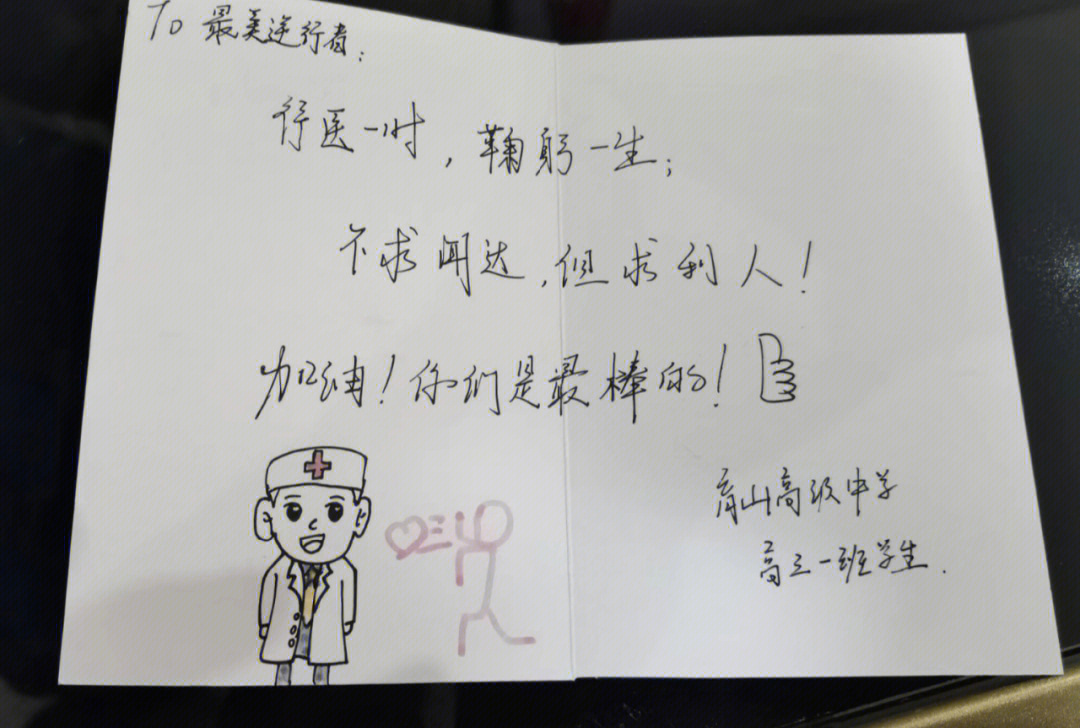 To 最美逆行者:
行医一时,鞠躬一生;
不求闻达,但求利人!
加油!你们是最棒的!
育山高级中学
高三一班学生.